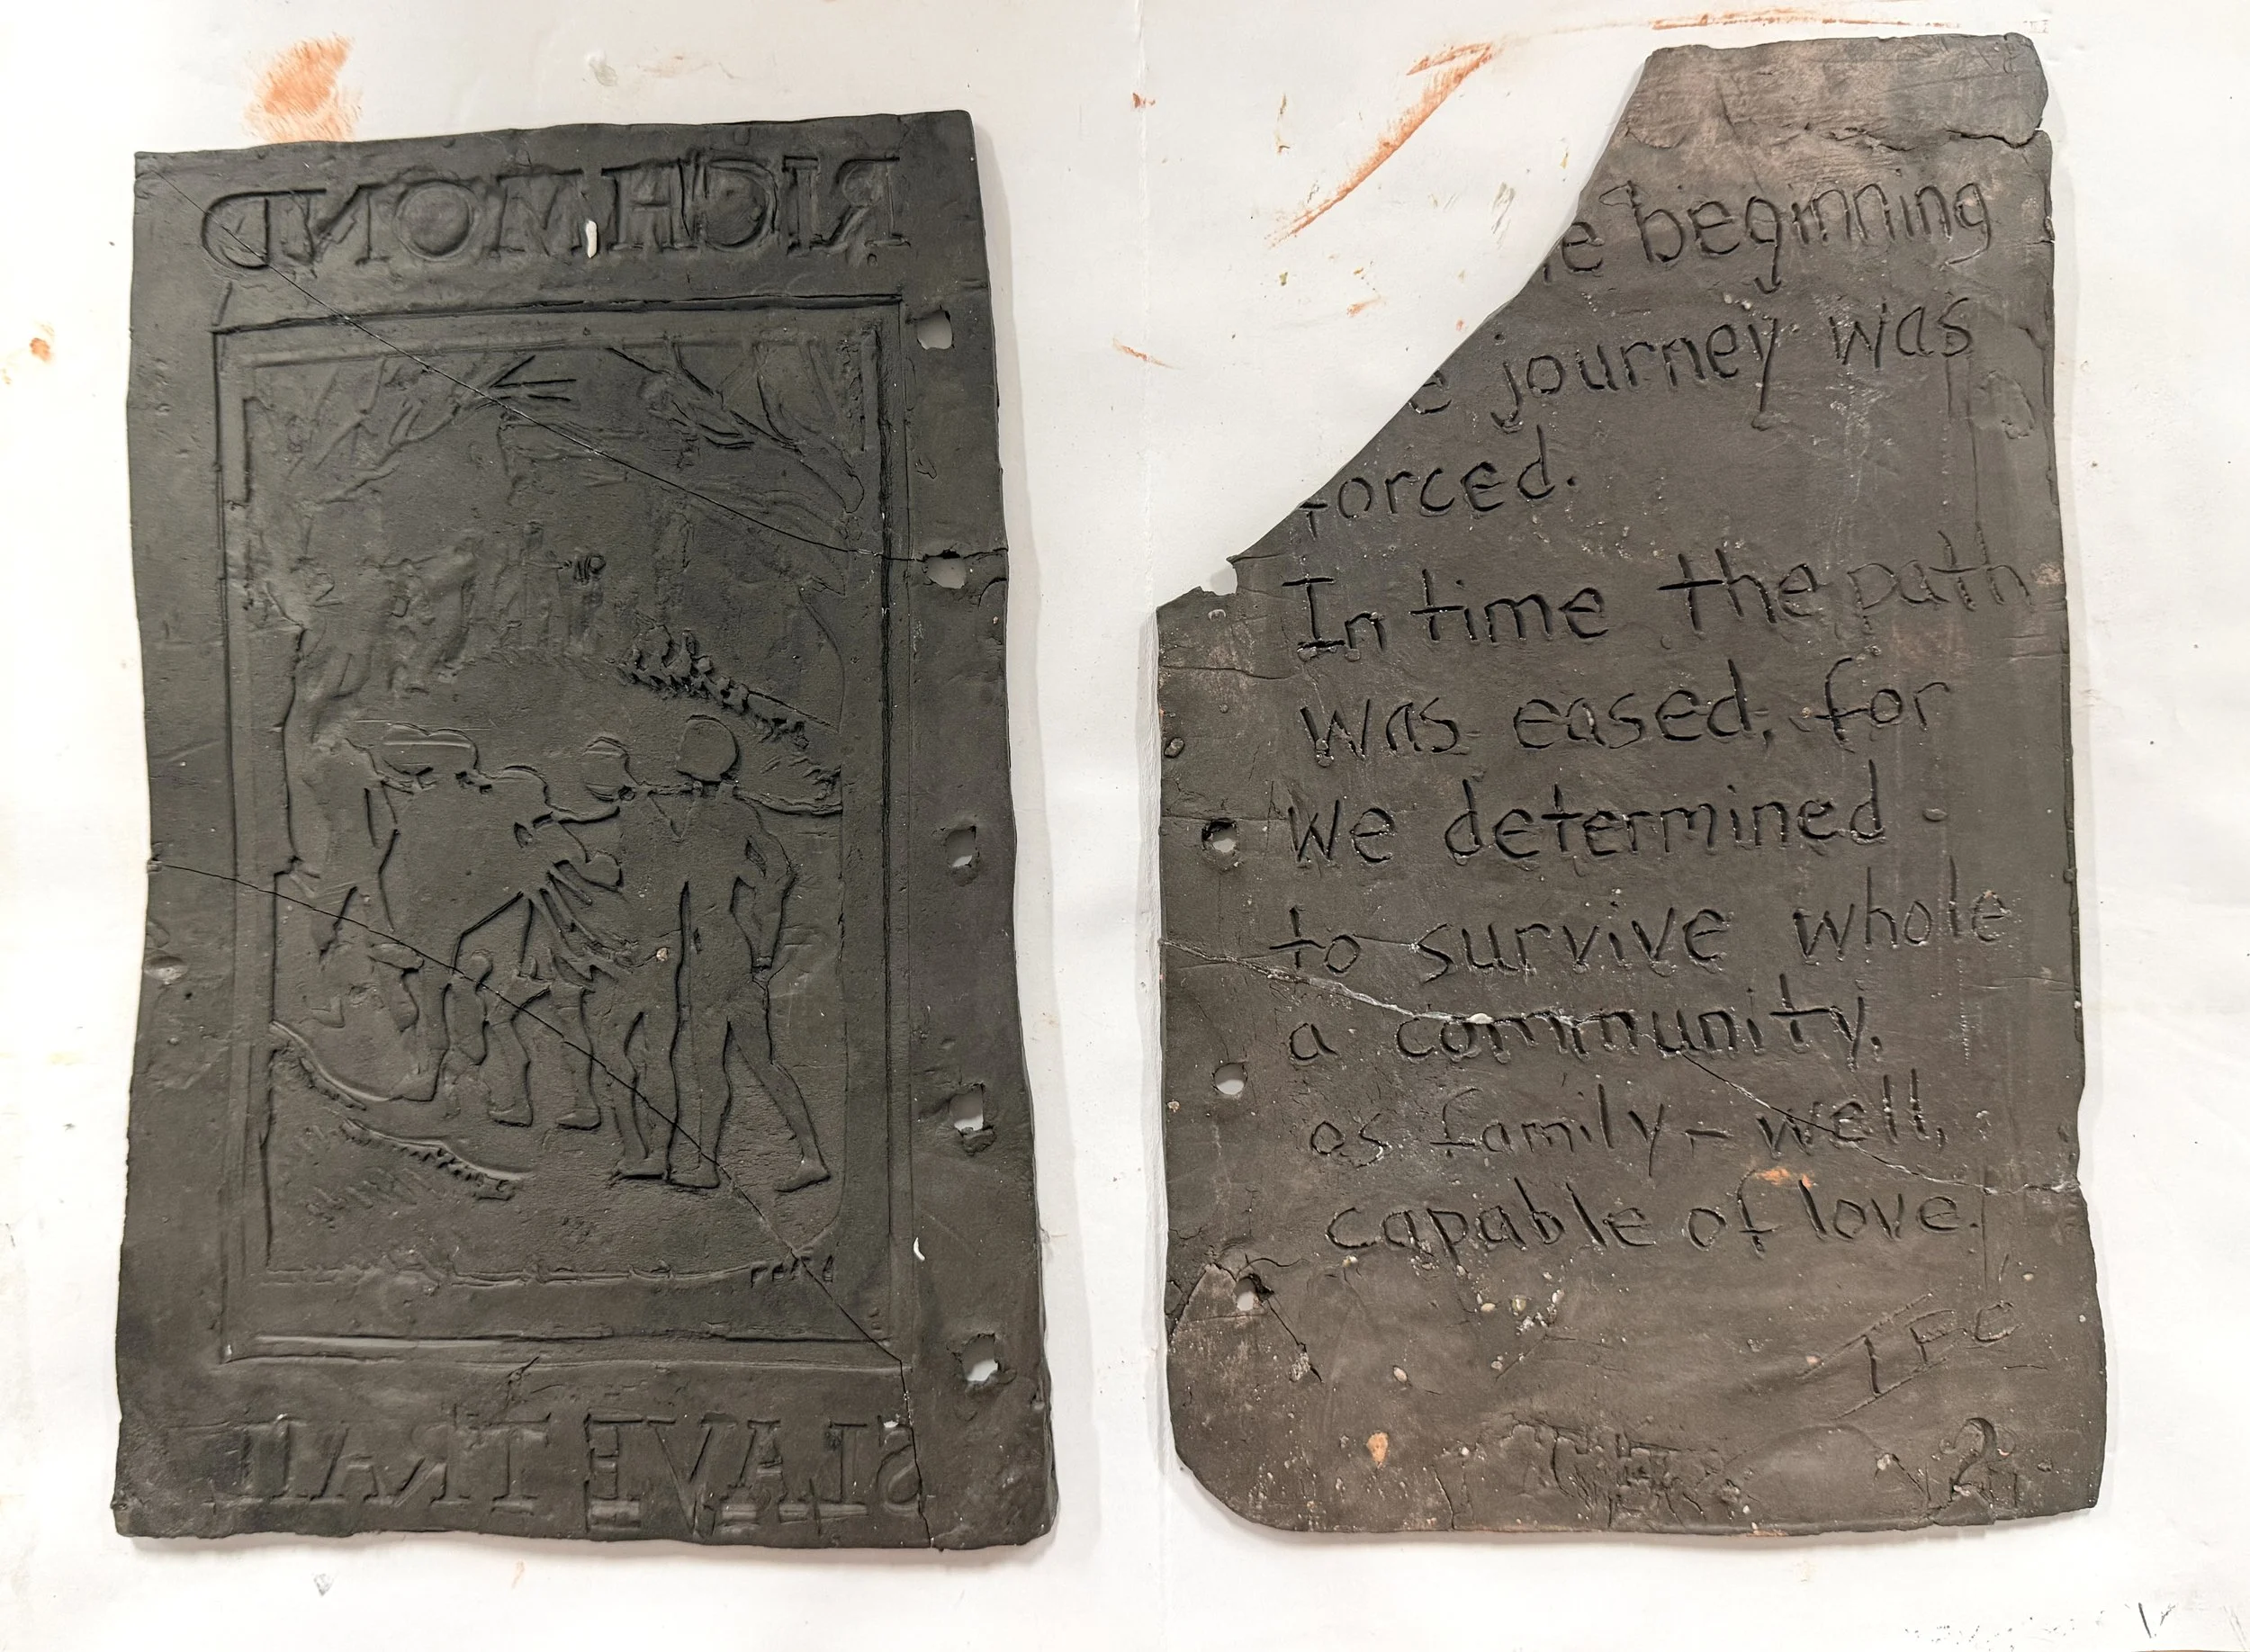 RICHMOND
SLAVE TRAIL
e beginning
e journey was
forced.
In time the path
was eased, for
We determined
to survive whole
a community,
as family – well,
capable of love.